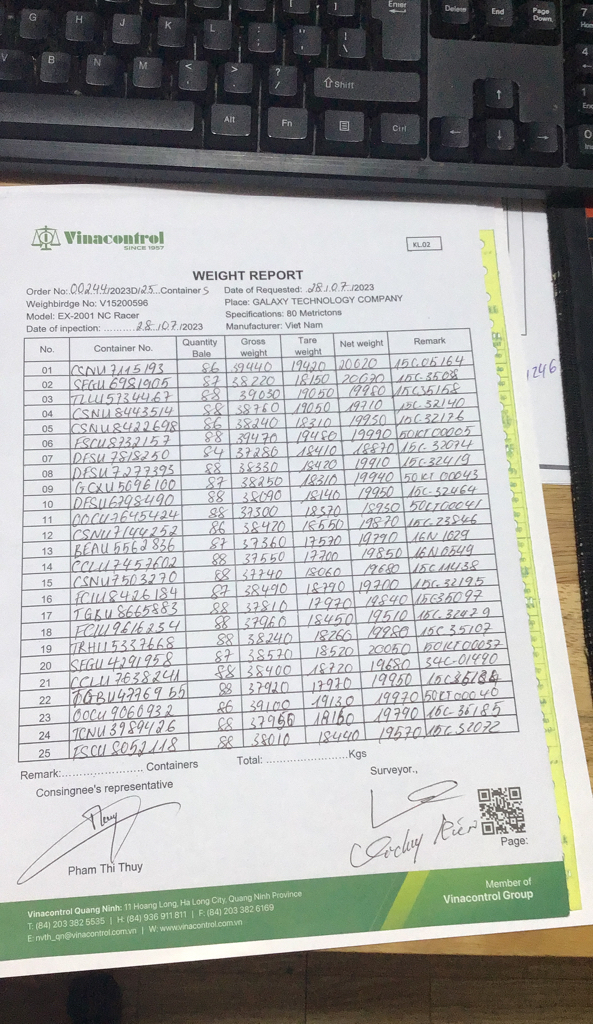 G
H
J
K
L
Enter
Delete
End
Page Down
7
V
B
N
M
<
>
?
/
Shift
4
Alt
Fn
Ctrl
1
0
Vinacontrol
SINCE 1957
KL.02
1246
WEIGHT REPORT
Order No: 00244/2023D/25 Containers Date of Requested: 28/07/2023
Weighbirdge No: V15200596 Place: GALAXY TECHNOLOGY COMPANY
Model: EX-2001 NC Racer Specifications: 80 Metrictons
Date of inpection: ........... 28/07/2023 Manufacturer: Viet Nam
No. Container No. Quantity Bale Gross weight Tare weight Net weight Remark
01 CSNU7115193 86 39440 19420 20020 15C.05164
02 SEGU6981905 87 38220 18150 20070 15C-3508
03 TLLU5734467 88 39030 19050 19980 15C35158
04 CSNU8443514 88 38760 19050 19710 15C-32140
05 CSNU8422698 86 38240 18310 19930 15C-32176
06 FSCU8732157 88 39470 19480 19990 50KT00005
07 DFSU7818250 84 37280 18410 18870 15C-32074
08 DFSU7277393 88 38330 18420 19910 15C-32419
09 GCXU5696100 87 38250 18310 19940 50KT 00043
10 DFSU6798490 88 38090 18140 19950 15C-32464
11 OOCU7645424 88 37300 18370 18930 50KT00041
12 CSNU7144252 86 38420 18550 19870 15C-23846
13 BEAU5562836 87 37360 17570 19790 16N 1029
14 CCLU7457602 88 37550 17700 19850 16N0549
15 CSNU7503270 88 37740 18060 19680 15C11438
16 FCIU8426184 87 38490 18790 19700 15C-32195
17 TGBU8665883 88 37810 17970 19840 15C35097
18 FCIU9616234 88 37960 18450 19510 15C-32429
19 TRHU5337668 88 38240 18260 19980 15C 35107
20 SEGU4291958 87 38570 18520 20050 50KT00037
21 CCLU7638241 88 38400 18720 19680 34C-01490
22 TGBU4776955 88 37920 17970 19950
23 OOCU9060932 86 39100 19130 19970 50KT00040
24 TCNU3989426 88 37950 18160 19790 15C-35185
25 FSCU8052118 88 38010 18440 19570 15C-32072
Remark:................. Containers Total: ........................Kgs
Consingnee's representative Surveyor.,
Pham Thi Thuy
Page:
Vinacontrol Quang Ninh: 11 Hoang Long, Ha Long City, Quang Ninh Province
T: (84) 203 382 5535 | H: (84) 936 911 811 | F: (84) 203 382 6169
E: nvth_qn@vinacontrol.com.vn | W: www.vinacontrol.com.vn
Member of
Vinacontrol Group